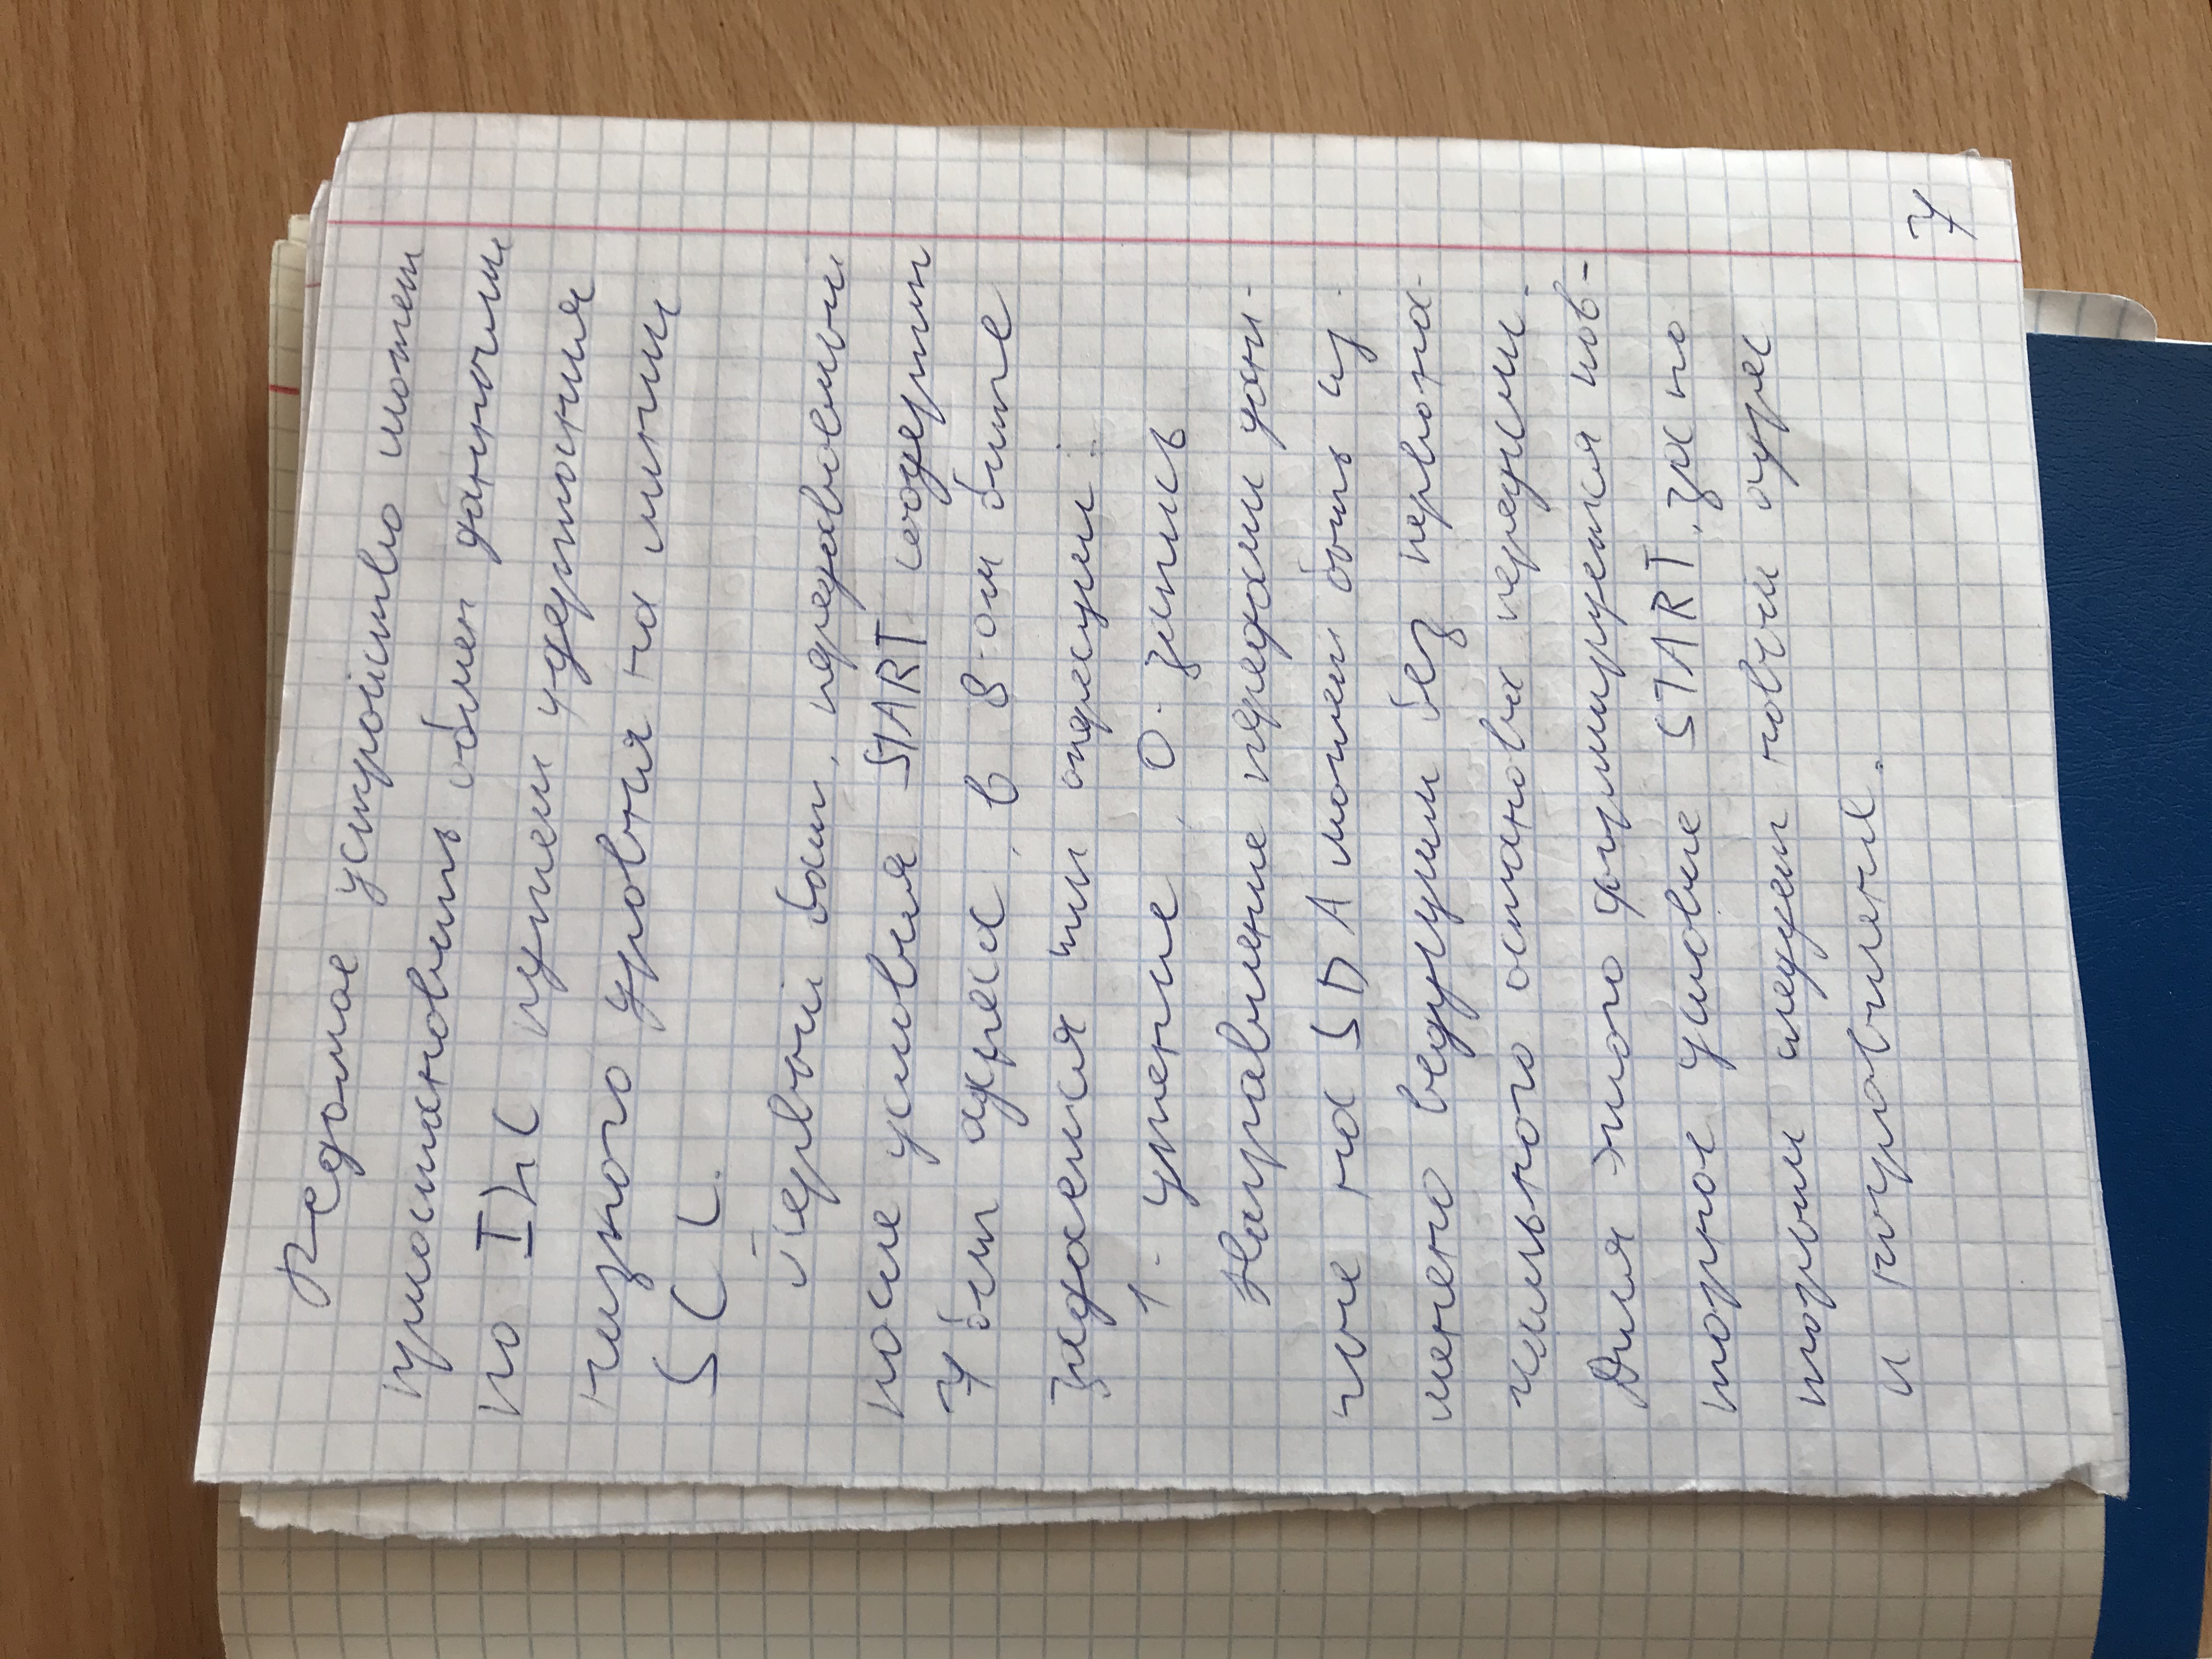 Ведомое устройство может
приостановить обмен данными
по I2C путем удержания
низкого уровня на линии
SCL.
Первый байт, передаваемый
после условия START содержит
7 бит адреса, в 8-ом бите
задается тип операции:
1 - чтение, 0 - запись
Направление передачи дан-
ные на SDA может быть из-
менено ведущим без первона-
чального останова передачи.
Для этого формируется пов-
торное условие START, за ко
торым следует новый адрес
и направление.
7